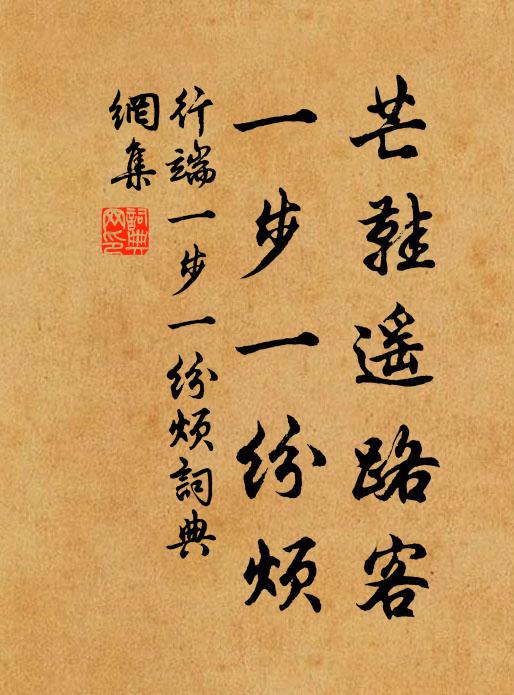 芒鞋遥路客
一步一纷烦
行端一步一纷烦詞典
網集
詞典
网印